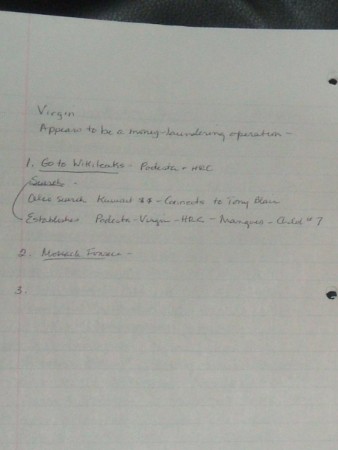 Virgin
Appears to be a money-laundering operation -
1. Go to Wikileaks - Podesta + HRC
Search -
Also search Kuwait $$ - Connects to Tony Blair
Establishes Podesta - Virgin - HRC - - Child # 7
2. Mossack Fonseca -
3.